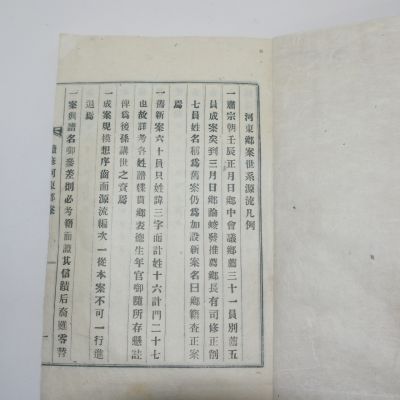 河東鄉案世系源流凡例
一肅宗朝壬辰正月日鄉中會議鄉薦三十一員別薦五
員成案矣到三月日鄉論峻發推薦鄉長有司修正削
七員姓名稱爲舊案仍爲加設新案名曰鄉籍查正案
焉
一舊新案六十員只姓諱三字而計姓十六計門二十七
也故詳考各姓譜牒貫鄉表德生年官啣隨所存懸註
俾爲後孫講世之資焉
一成案規模想序齒而源流編次一從本案不可一行進
退焉
一案與譜名啣參差則必考籍而證其信蹟后裔雖零替